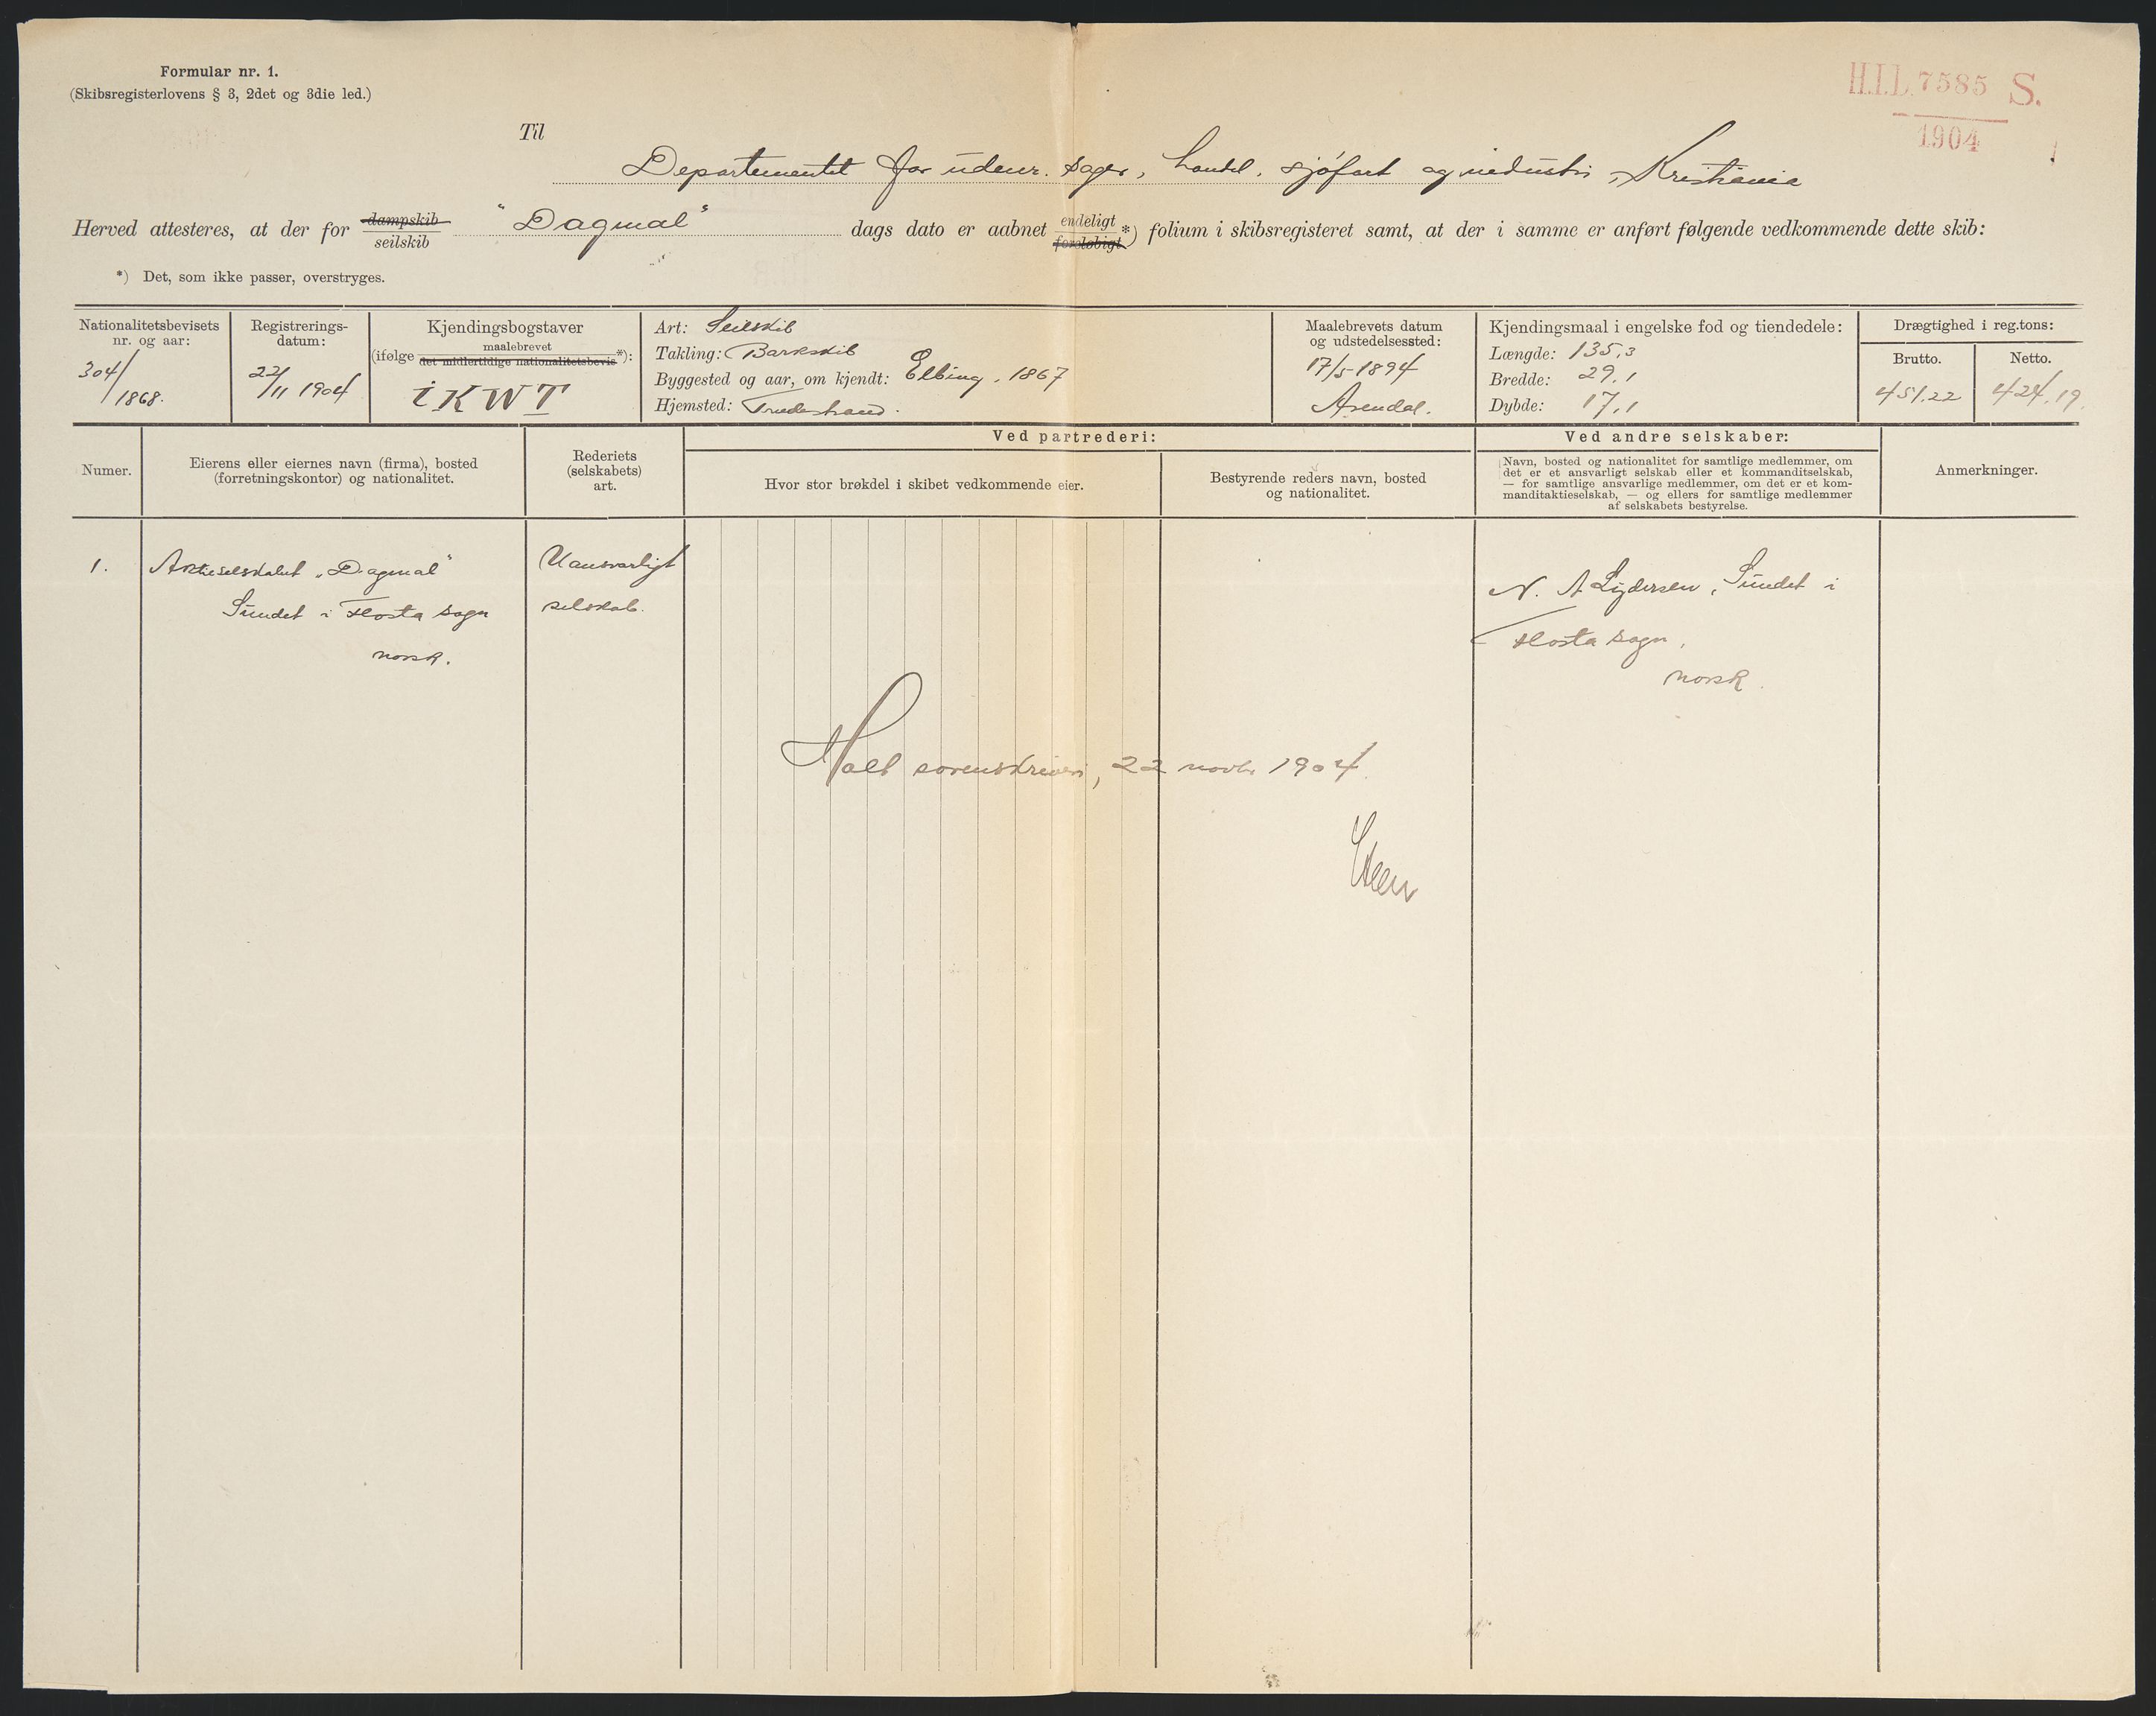 Formular nr. 1.
(Skibsregisterlovens § 3, 2det og 3die led.)
H.I.L. 7585 S.
1904
Til
Departementet for udenr. sager, handel, sjøfart og industri, Kristiania
Herved attesteres, at der for dampskib seilskib "Dagmal" dags dato er aabnet endeligt foreløbigt *) folium i skibsregisteret samt, at der i samme er anført følgende vedkommende dette skib:
*) Det, som ikke passer, overstryges.
Nationalitetsbevisets nr. og aar:
304/1868.
Registreringsdatum:
22/11 1904
Kjendingsbogstaver
(ifølge maalebrevet det midlertidige nationalitetsbevis *):
i K W T
Art: Seilskib
Takling: Barkskib
Byggested og aar, om kjendt: Elbing, 1867
Hjemsted: Tvedestrand.
Maalebrevets datum og udstedelsessted:
17/5 1894
Arendal.
Kjendingsmaal i engelske fod og tiendedele:
Længde: 135,3
Bredde: 29,1
Dybde: 17,1
Drægtighed i reg.tons:
Brutto.
451.22
Netto.
424,19.
Numer.
Eierens eller eiernes navn (firma), bosted
(forretningskontor) og nationalitet.
Rederiets
(selskabets)
art.
Ved partrederi:
Hvor stor brøkdel i skibet vedkommende eier.
Bestyrende reders navn, bosted
og nationalitet.
Ved andre selskaber:
Navn, bosted og nationalitet for samtlige medlemmer, om
det er et ansvarligt selskab eller et kommanditselskab,
— for samtlige ansvarlige medlemmer, om det er et kom-
manditaktieselskab, — og ellers for samtlige medlemmer
af selskabets bestyrelse.
Anmerkninger.
1.
Aktieselskabet "Dagmal"
Sundet i Flosta sogn
norsk.
Uansvarligt
selskab.
N. A Lydersen, Sundet i
Flosta sogn,
norsk.
Holt sorenskriveri, 22 novbr 1904.